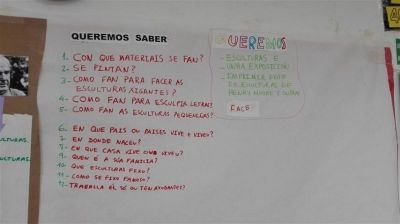 QUEREMOS SABER
1- CON QUE MATERIAIS SE FAN?
2- SE PINTAN?
3- COMO FAN PARA FACER AS
ESCULTURAS XIGANTES?
4- COMO FAN PARA ESCULPIR LETRAS?
5- COMO FAN AS ESCULTURAS PEQUENIÑAS?
6- EN QUE PAIS OU PAISES VIVE E VIVEU?
7- EN DONDE NACEU?
8- EN QUE CASA VIVE OU VIVEU?
9- QUEN É A SÚA FAMILIA?
10- QUE ESCULTURAS FIXO?
11- COMO SE FIXO FAMOSO?
12- TRABALLA ÉL SÓ OU TEN AXUDANTES?
QUEREMOS
- ESCULTURAS E
UNHA EXPOSICIÓN
- IMPRIMIR FOTOS
DE ESCULTURAS DE
HENRY MOORE E OUTRAS
FACE
CULTURAS.
CULTURAS